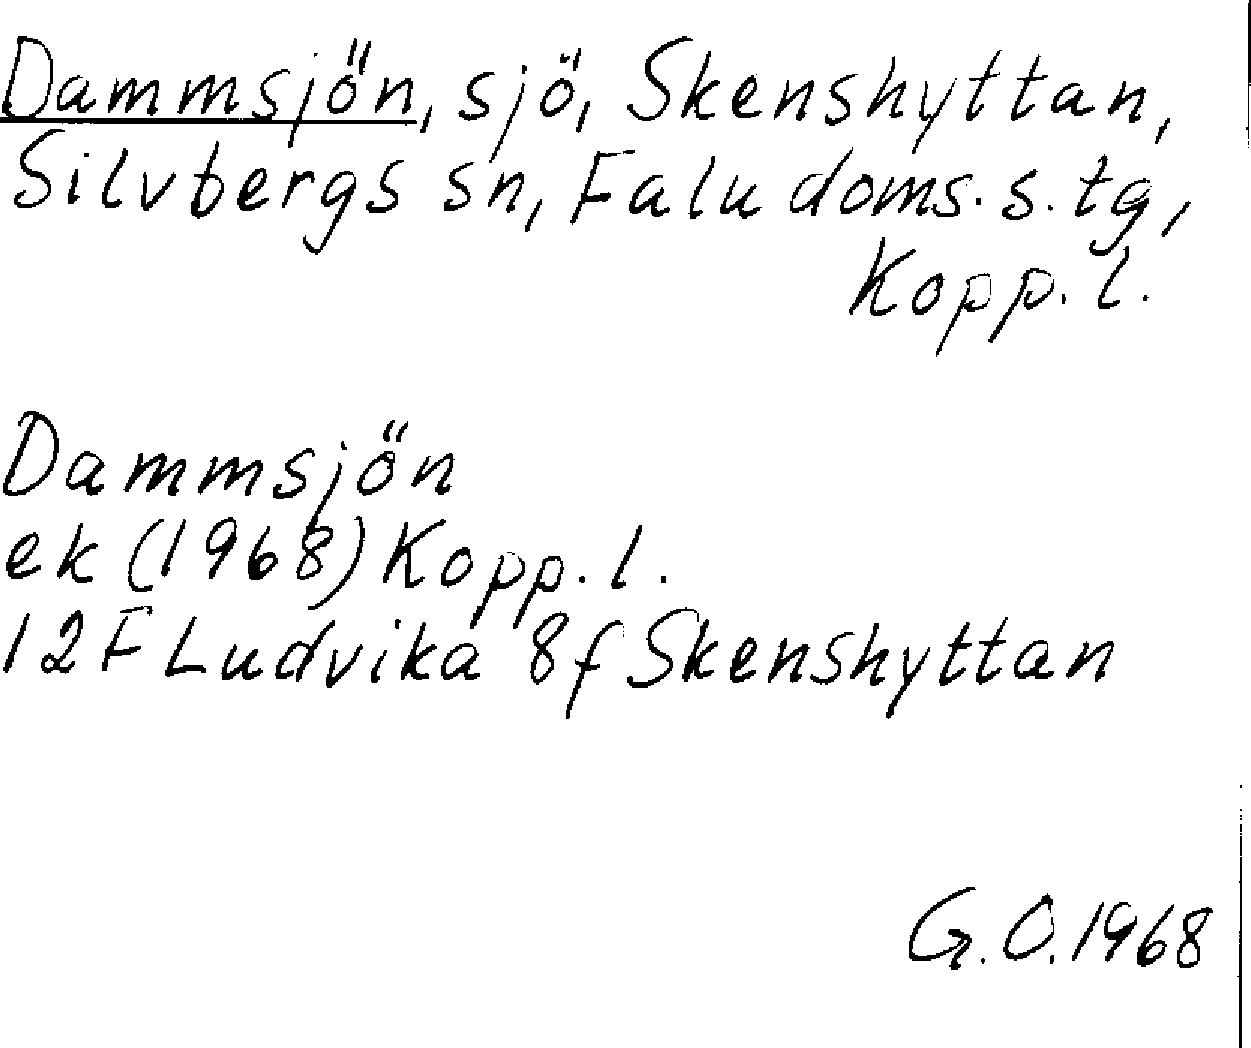 Dammsjön, sjö, Skenshyttan,
Silvbergs sn, Falu doms. s. tg,
Kopp. l.
Dammsjön
ek (1968) Kopp. l.
12F Ludvika 8f Skenshyttan
G. O. 1968